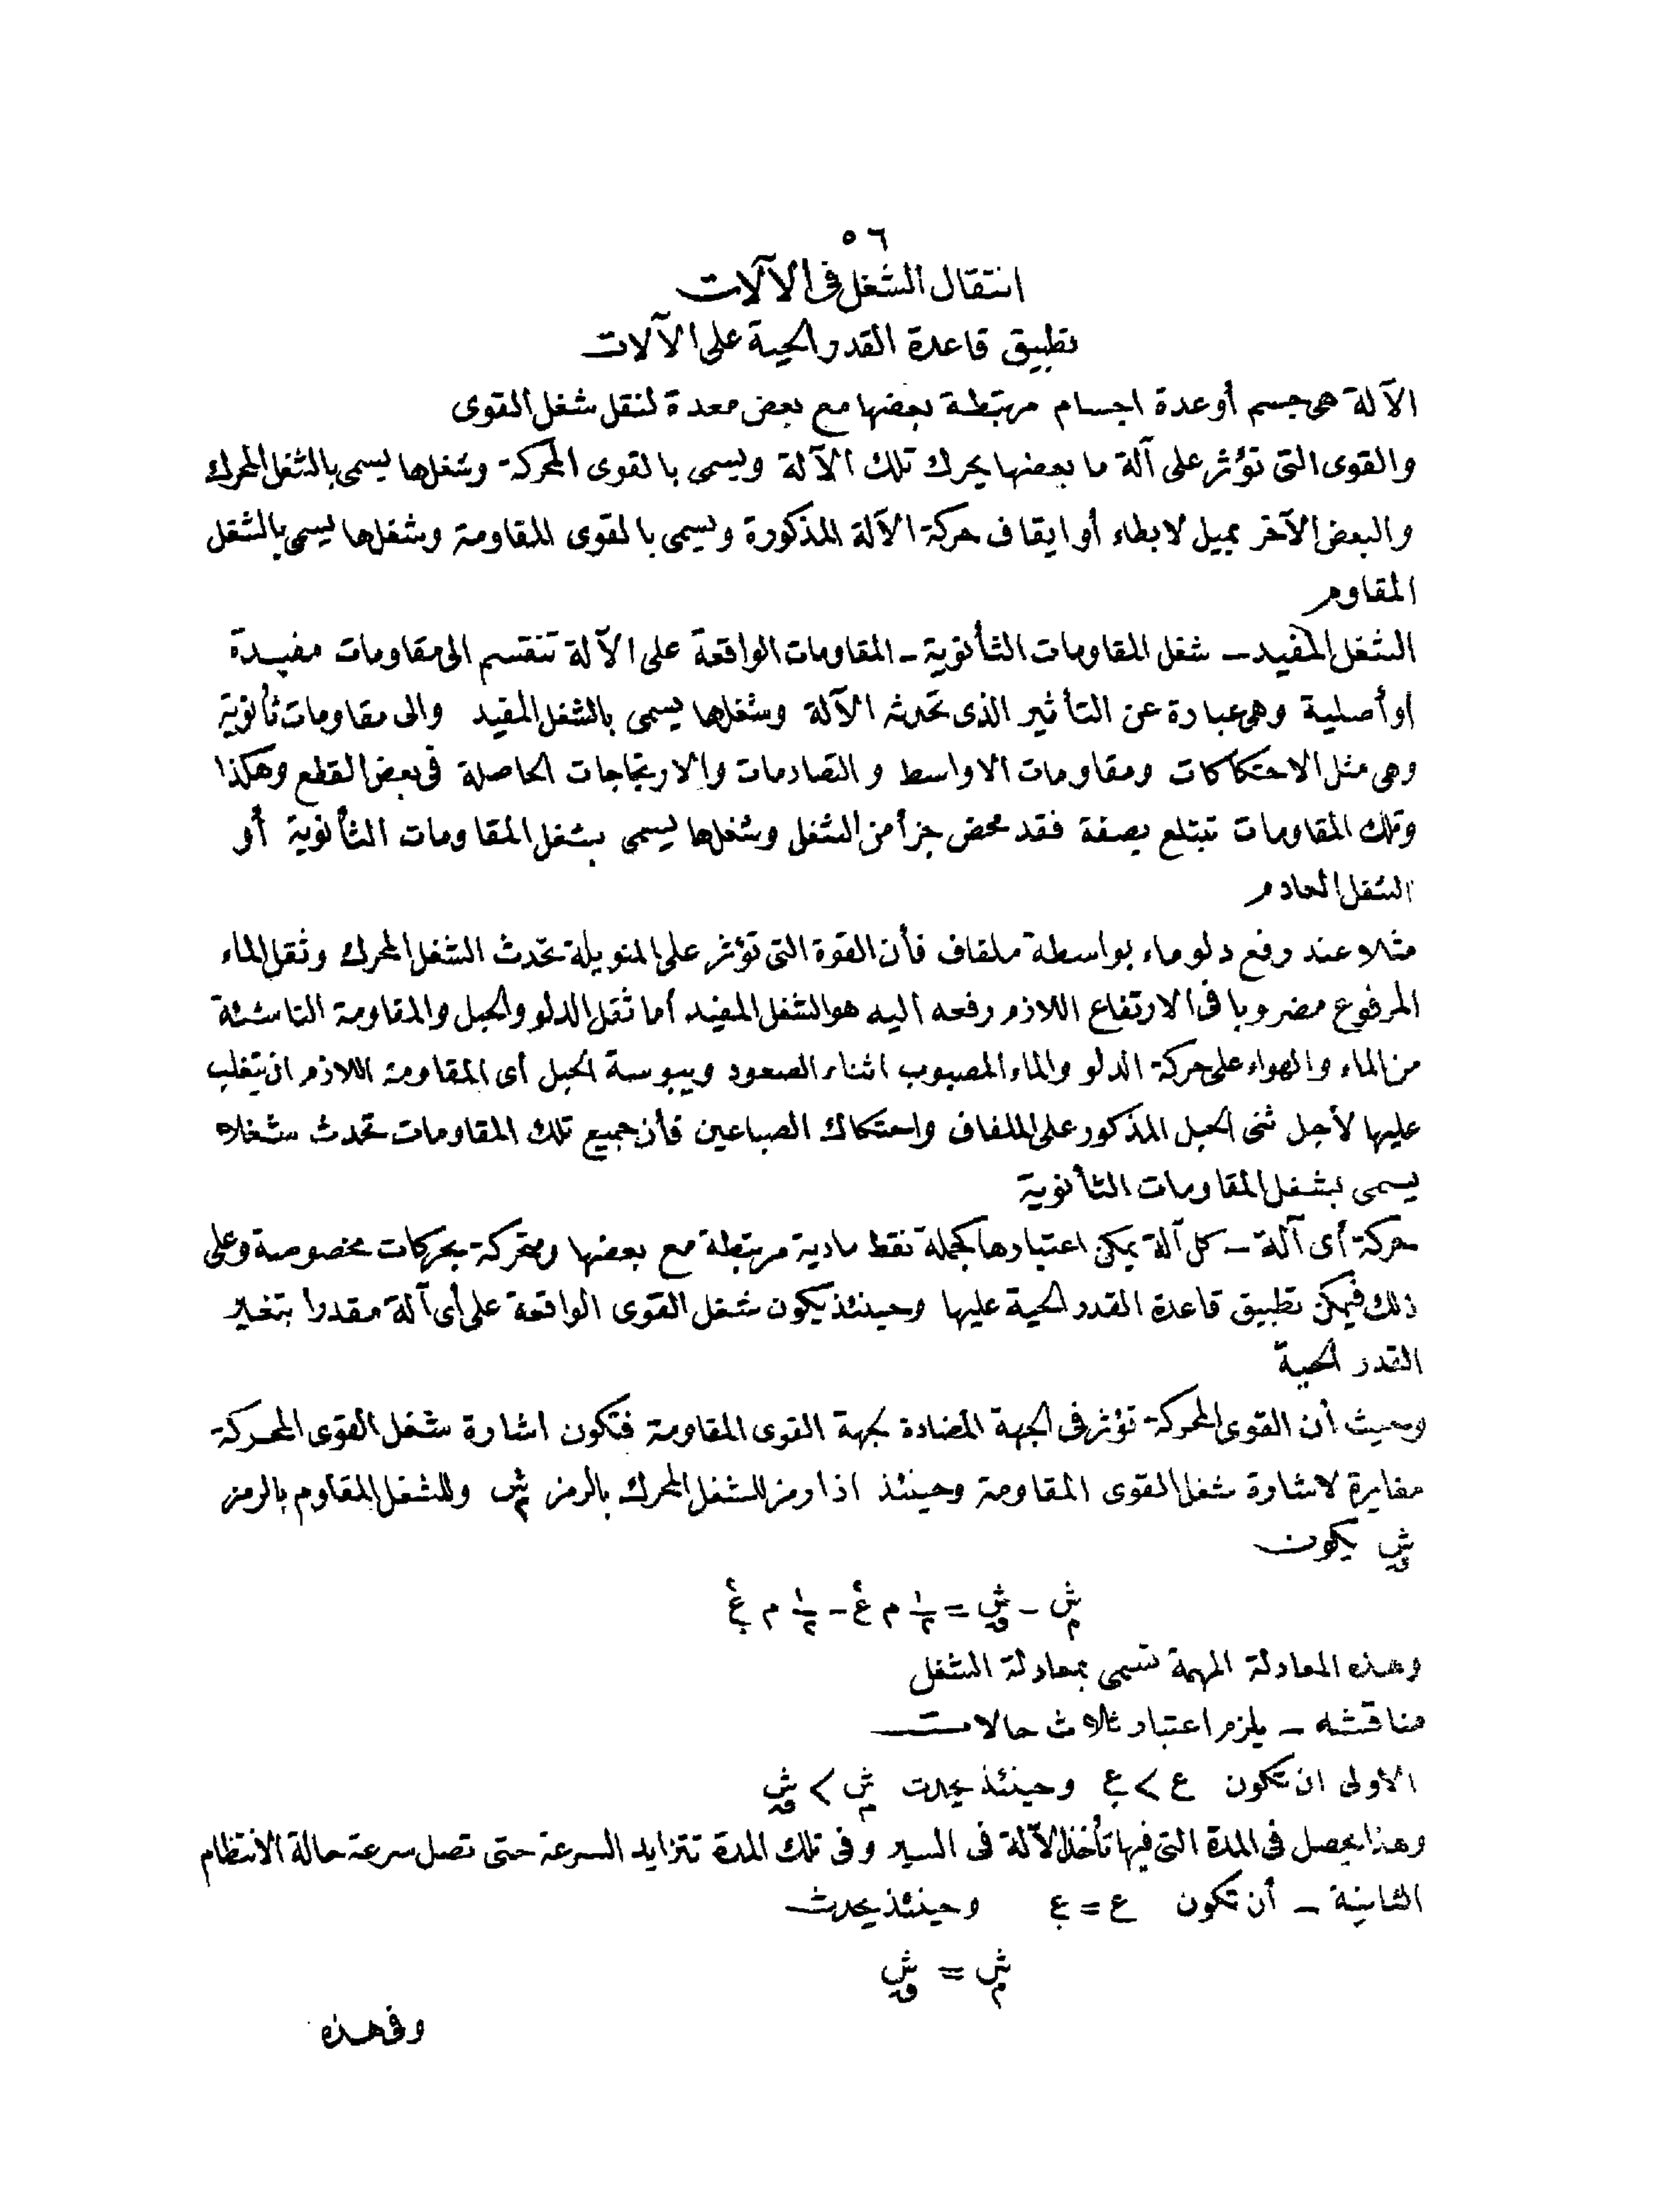 ٥٦
انتقال الشغل فى الآلات
تطبيق قاعدة القدر الحية على الآلات
الآلة هى جسم أو عدة اجسام مرتبطة بعضها مع بعض معدة لنقل شغل القوى
والقوى التى تؤثر على آلة ما بعضها يحرك تلك الآلة ويسمى بالقوى المحركة وشغلها يسمى بالشغل المحرك
والبعض الآخر يميل لابطاء أو ايقاف حركة الآلة المذكورة ويسمى بالقوى المقاومة وشغلها يسمى بالشغل
المقاوم
الشغل المفيد – شغل المقاومات الثأنوية – المقاومات الواقعة على الآلة تنقسم الى مقاومات مفيدة
أو أصلية وهى عبارة عن التأثير الذى تحدثه الآلة وشغلها يسمى بالشغل المفيد والى مقاومات ثأنوية
وهى مثل الاحتكاكات ومقاومات الاواسط والتصادمات والارتجاجات الحاصلة فى بعض القطع وهكذا
وتلك المقاومات تبتلع بصفة فقد محض جزأ من الشغل وشغلها يسمى بشغل المقاومات الثأنوية أو
الشغل العادم
مثلا عند رفع دلو ماء بواسطة ملفاف فأن القوة التى تؤثر على المنويلة تحدث الشغل المحرك وثقل الماء
المرفوع مضروبا فى الارتفاع اللازم رفعه اليه هو الشغل المفيد أما ثقل الدلو والحبل والمقاومة الناشئة
من الماء والهواء على حركة الدلو والماء المصبوب اثناء الصعود ويبوسة الحبل أى المقاومة اللازم ان يتغلب
عليها لأجل ثنى الحبل المذكور على الملفاف واحتكاك الصباعين فأن جميع تلك المقاومات تحدث شغلا
يسمى بشغل المقاومات الثأنوية
حركة أى آلة – كل آلة يمكن اعتبارها كجملة نقط مادية مرتبطة مع بعضها ومتحركة بحركات مخصوصة وعلى
ذلك فيمكن تطبيق قاعدة القدر الحية عليها وحينئذ يكون شغل القوى الواقعة على أى آلة مقدرا بتغير
القدر الحية
وحيث أن القوى المحركة تؤثر فى الجهة المضادة لجهة القوى المقاومة فتكون اشارة شغل القوى المحركة
مغايرة لاشارة شغل القوى المقاومة وحينئذ اذا رمز للشغل المحرك بالرمز شم وللشغل المقاوم بالرمز
شق يكون
شم - شق = ١/٢ م ع٢ - ١/٢ م ع.٢
وهذه المعادلة المهمة تسمى بمعادلة الشغل
مناقشه – يلزم اعتبار ثلاث حالات
الاولى ان تكون ع > ع. وحينئذ يحدث شم > شق
وهذا يحصل فى المدة التى فيها تأخذ الآلة فى السير وفى تلك المدة تتزايد السرعة حتى تصل سرعة حالة الانتظام
الثانية – أن تكون ع = ع. وحينئذ يحدث
شم = شق
وفى هذه